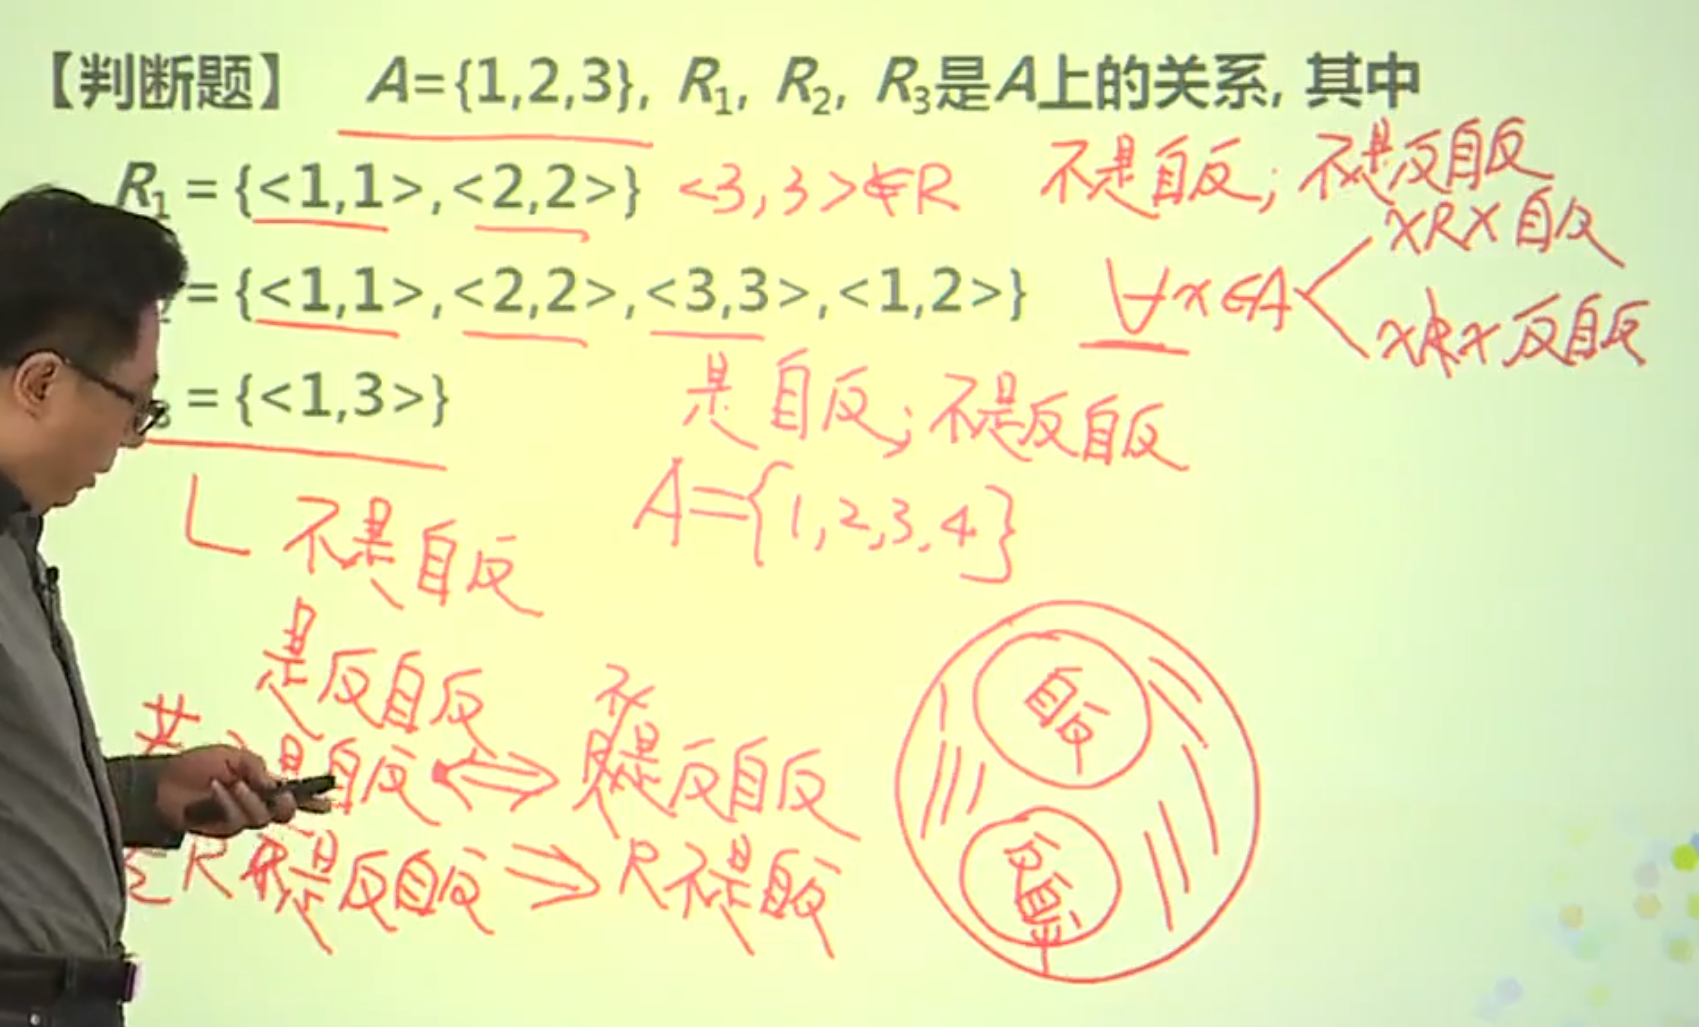 【判断题】 A={1,2,3}, R₁, R₂, R₃是A上的关系, 其中
R₁ = {<1,1>,<2,2>} <3,3>∉R 不是自反; 不是反自反
xRx 自反
= {<1,1>,<2,2>,<3,3>,<1,2>} ∀x∈A
xRx 反自反
= {<1,3>} 是自反; 不是反自反
A={1,2,3,4}
不是自反
是反自反
是自反 不是反自反
R 是反自反 ⇒ R不是自反
自反
反自反